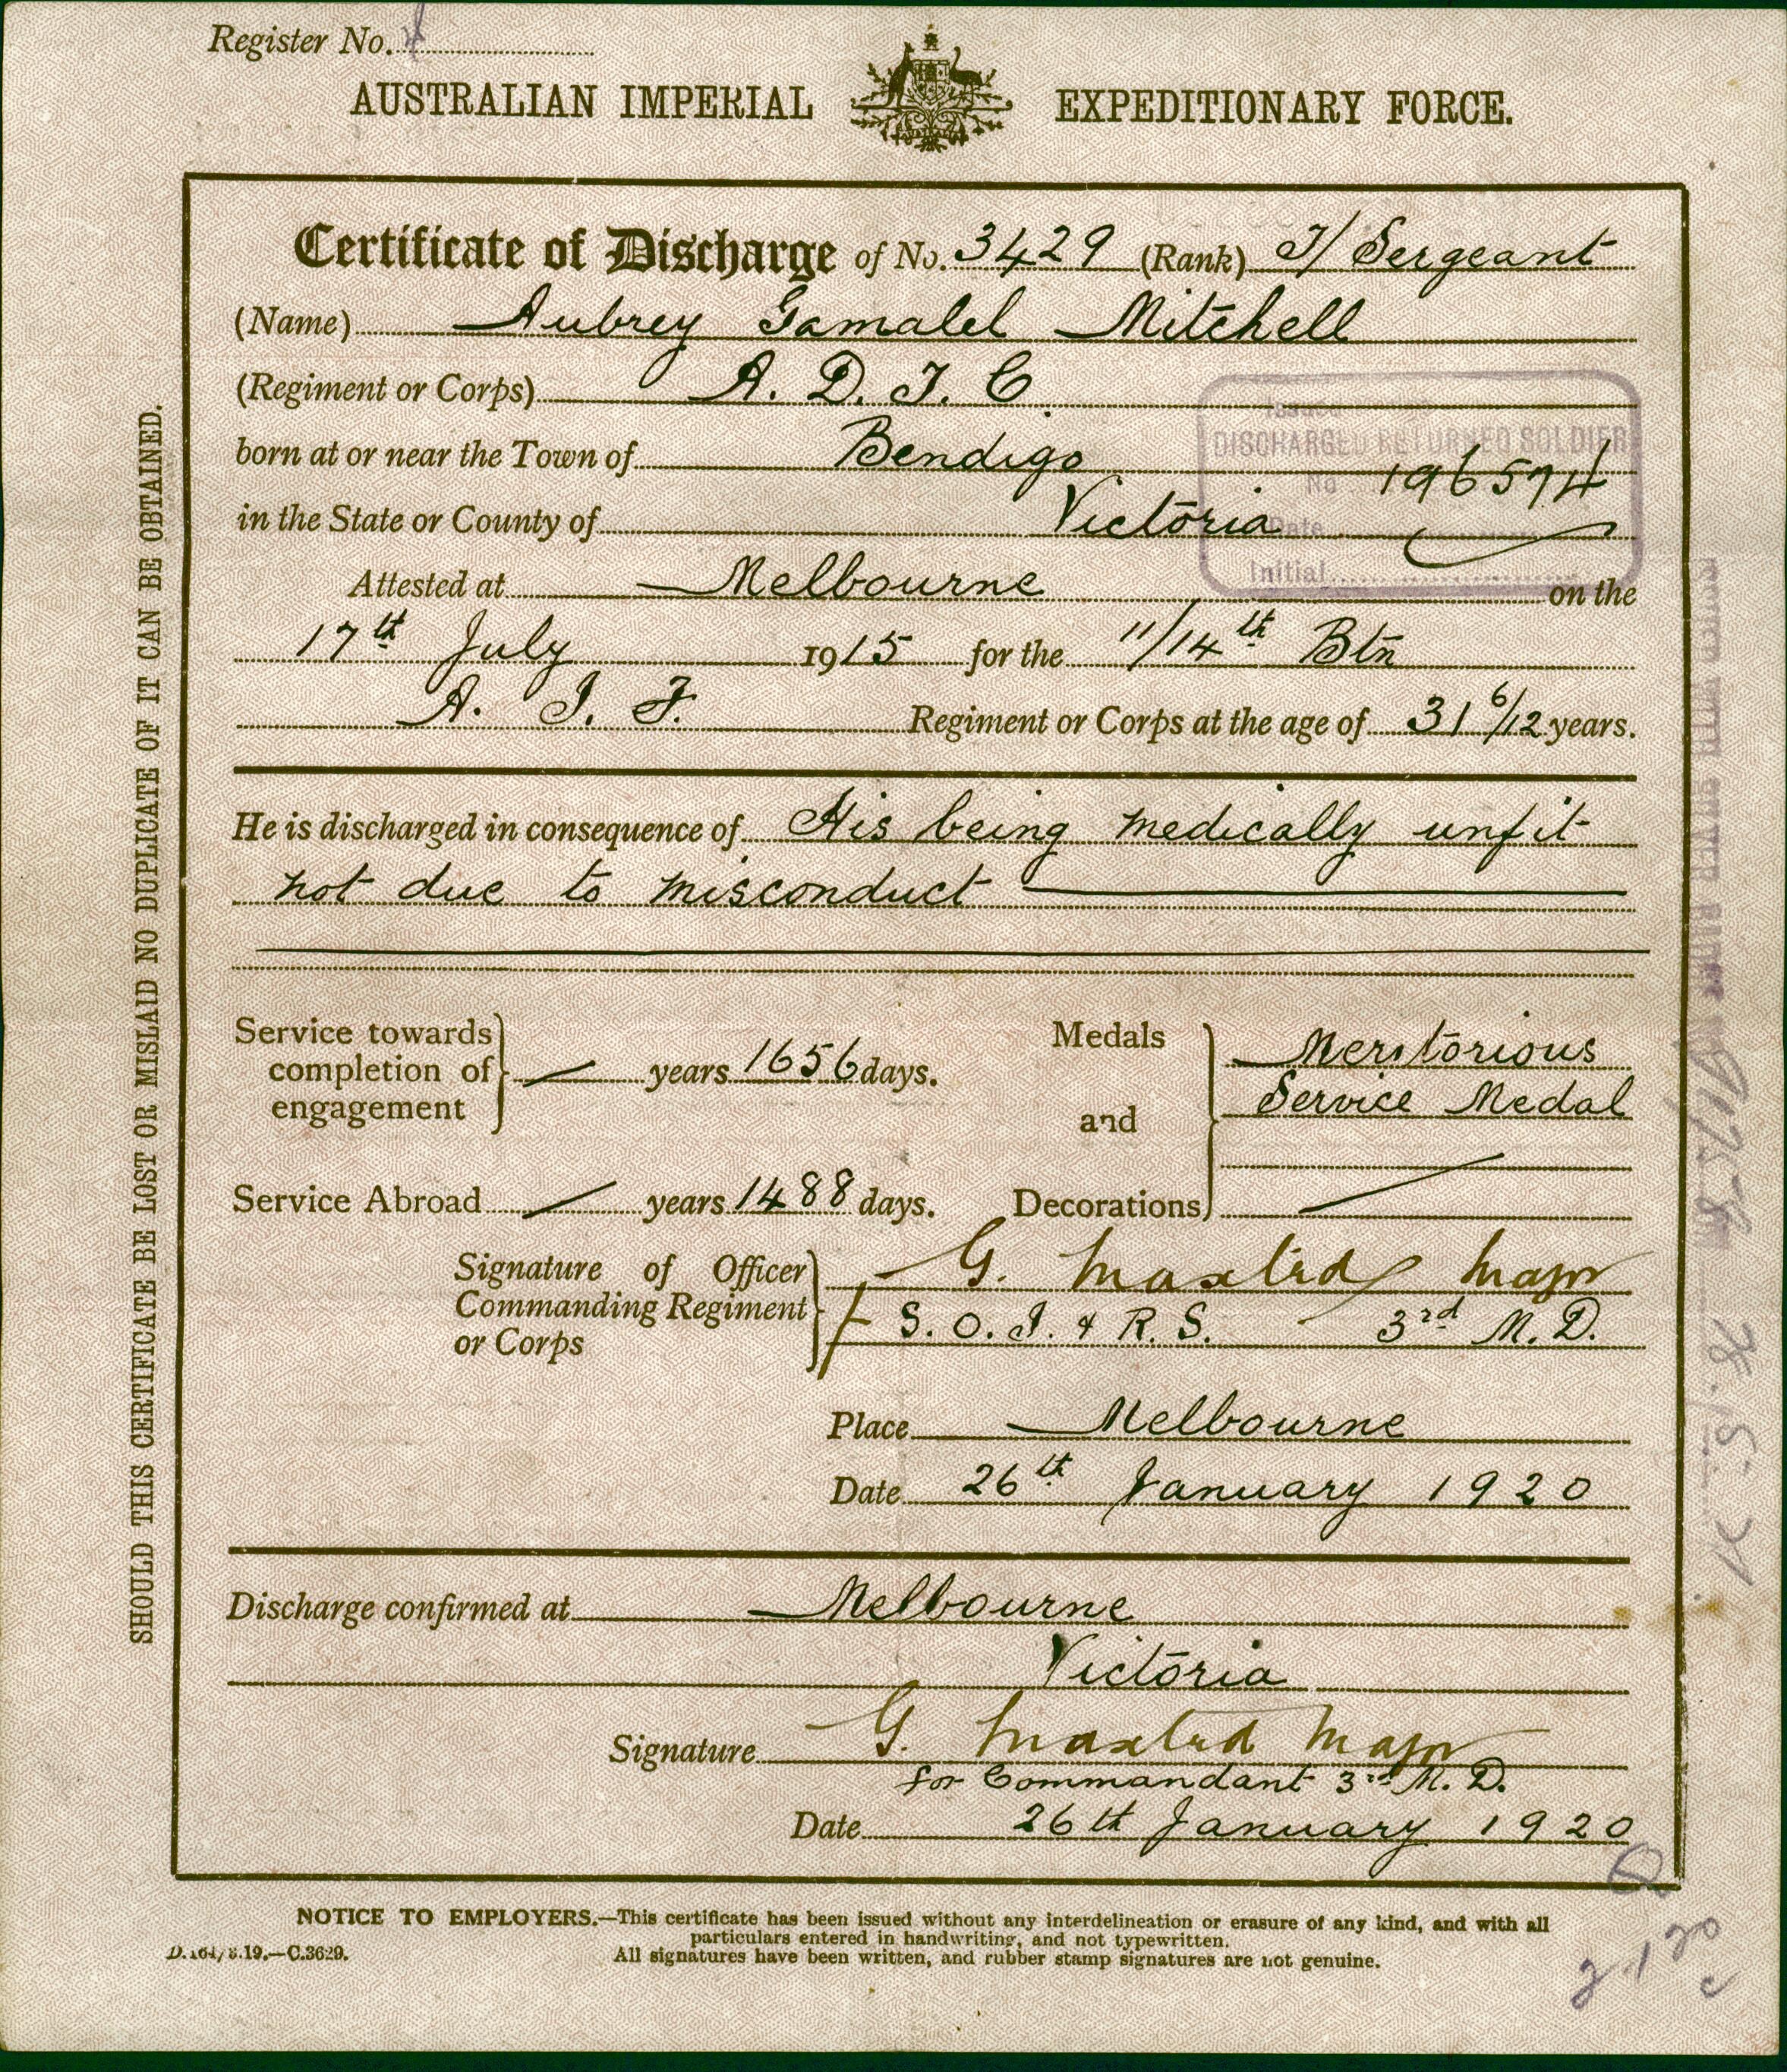 Register No.
AUSTRALIAN IMPERIAL EXPEDITIONARY FORCE.
Certificate of Discharge of No. 3429 (Rank) T/ Sergeant
(Name) Aubrey Gamalel Mitchell
(Regiment or Corps) A. D. T. C.
born at or near the Town of Bendigo
in the State or County of Victoria
Issued
DISCHARGED RETURNED SOLDIER
No 196574
Date
Initial
Attested at Melbourne on the
17th July 1915 for the 11/14th Btn
A. I. F. Regiment or Corps at the age of 31 6/12 years.
He is discharged in consequence of His being medically unfit
not due to misconduct
Service towards completion of engagement — years 1656 days.
Medals and Decorations Meritorious
Service Medal
Service Abroad — years 1488 days.
Signature of Officer Commanding Regiment or Corps G. Maxted Major
S. O. I. & R. S. 3rd M. D.
Place Melbourne
Date 26th January 1920
Discharge confirmed at Melbourne
Victoria
Signature G. Maxted Major
for Commandant 3rd M. D.
Date 26th January 1920
NOTICE TO EMPLOYERS.—This certificate has been issued without any interdelineation or erasure of any kind, and with all
particulars entered in handwriting, and not typewritten.
D.164/8.19.—C.3629.
All signatures have been written, and rubber stamp signatures are not genuine.
SHOULD THIS CERTIFICATE BE LOST OR MISLAID NO DUPLICATE OF IT CAN BE OBTAINED.